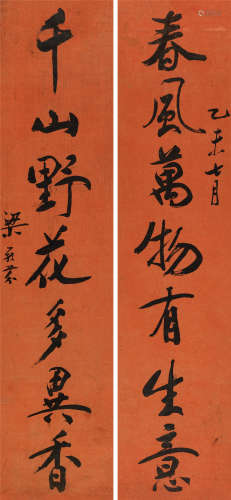 春風萬物有生意
乙未七月
千山野花多異香
梁鼎芬